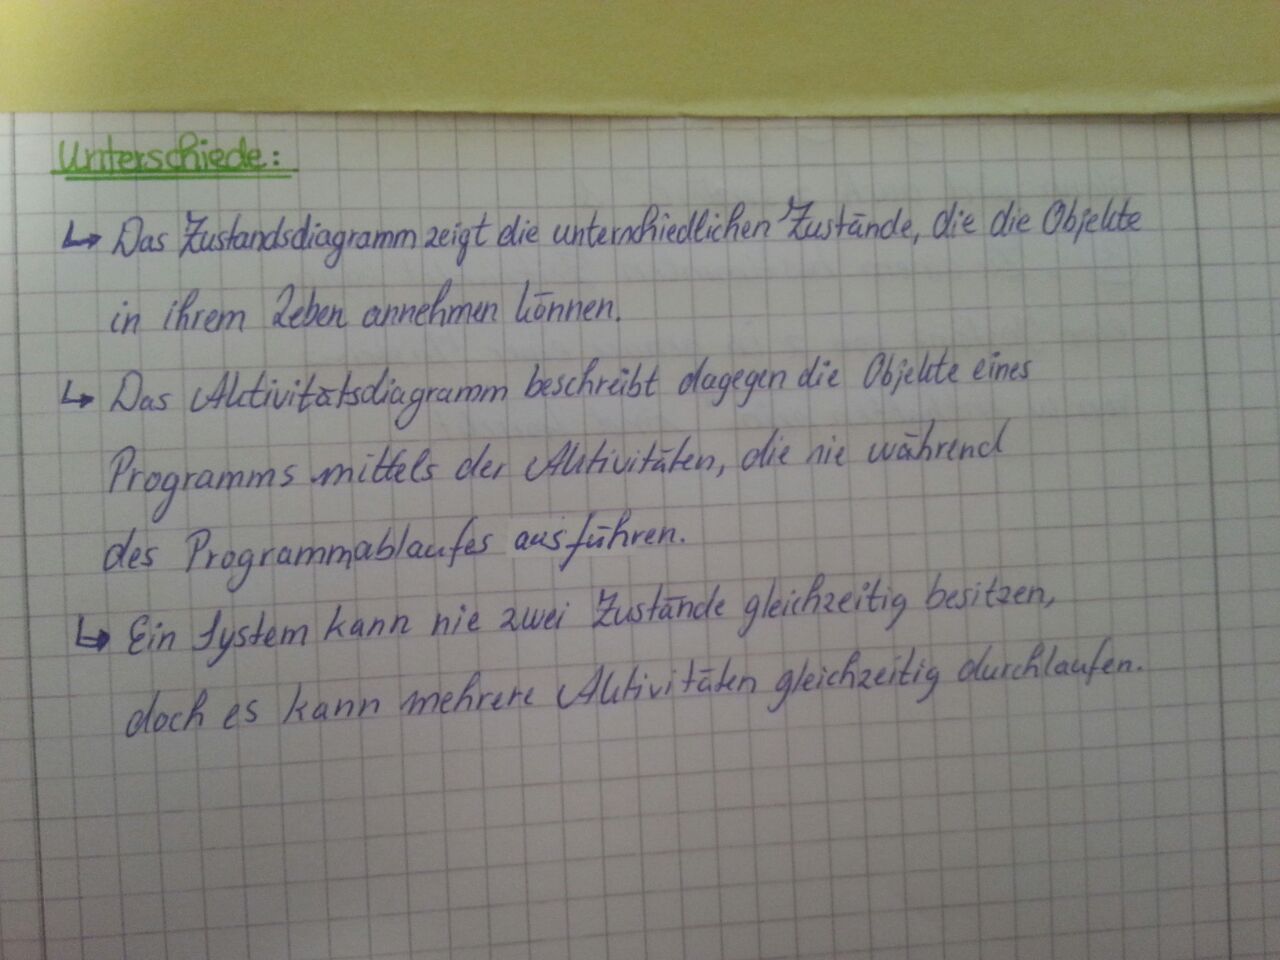 Unterschiede:
↳ Das Zustandsdiagramm zeigt die unterschiedlichen Zustände, die die Objekte
in ihrem Leben annehmen können.
↳ Das Aktivitätsdiagramm beschreibt dagegen die Objekte eines
Programms mittels der Aktivitäten, die sie während
des Programmablaufes ausführen.
↳ Ein System kann nie zwei Zustände gleichzeitig besitzen,
doch es kann mehrere Aktivitäten gleichzeitig durchlaufen.